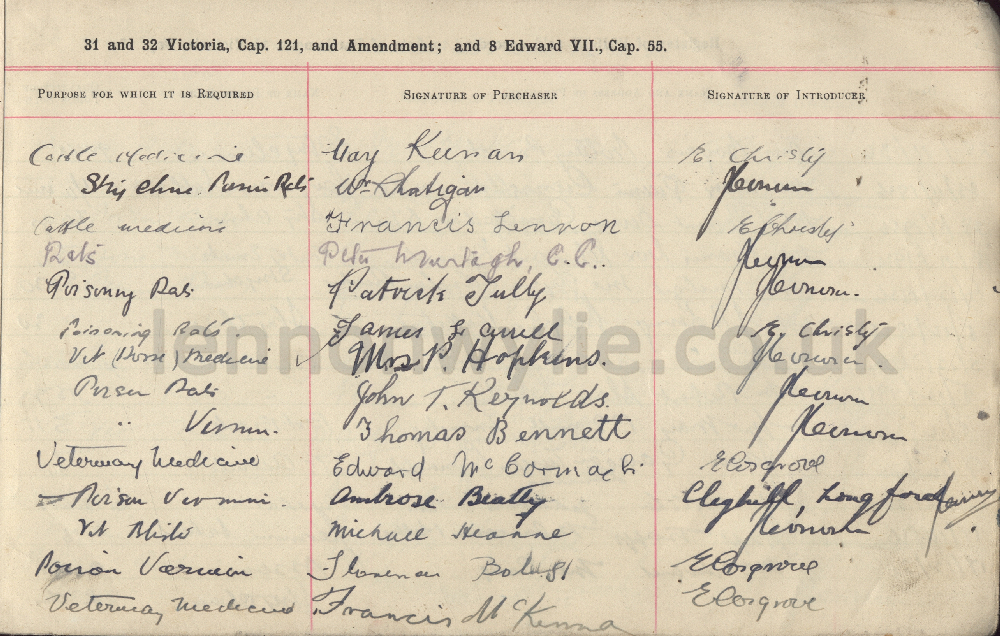 31 and 32 Victoria, Cap. 121, and Amendment; and 8 Edward VII., Cap. 55.
PURPOSE FOR WHICH IT IS REQUIRED SIGNATURE OF PURCHASER SIGNATURE OF INTRODUCER
Cattle Medicine May Keenan E. Christy
Rats
Cattle medicine Francis Lennon E Christy
Rats Peter Murtagh, C.C.
Poisoning Rats Patrick Tully
Poisoning Rats James E. Christy
Vet (Horse) Medicine Mrs P. Hopkins.
Poison Rats John T. Reynolds.
" Vermin. Thomas Bennett
Veterinary Medicine Edward McCormack E Cosgrove
Poison Vermin Ambrose Beatty Longford
Vet Michael Heanne
Poison Vermin Florence E Cosgrove
Veterinary Medicine Francis McKenna E Cosgrove
lennonwylie.co.uk